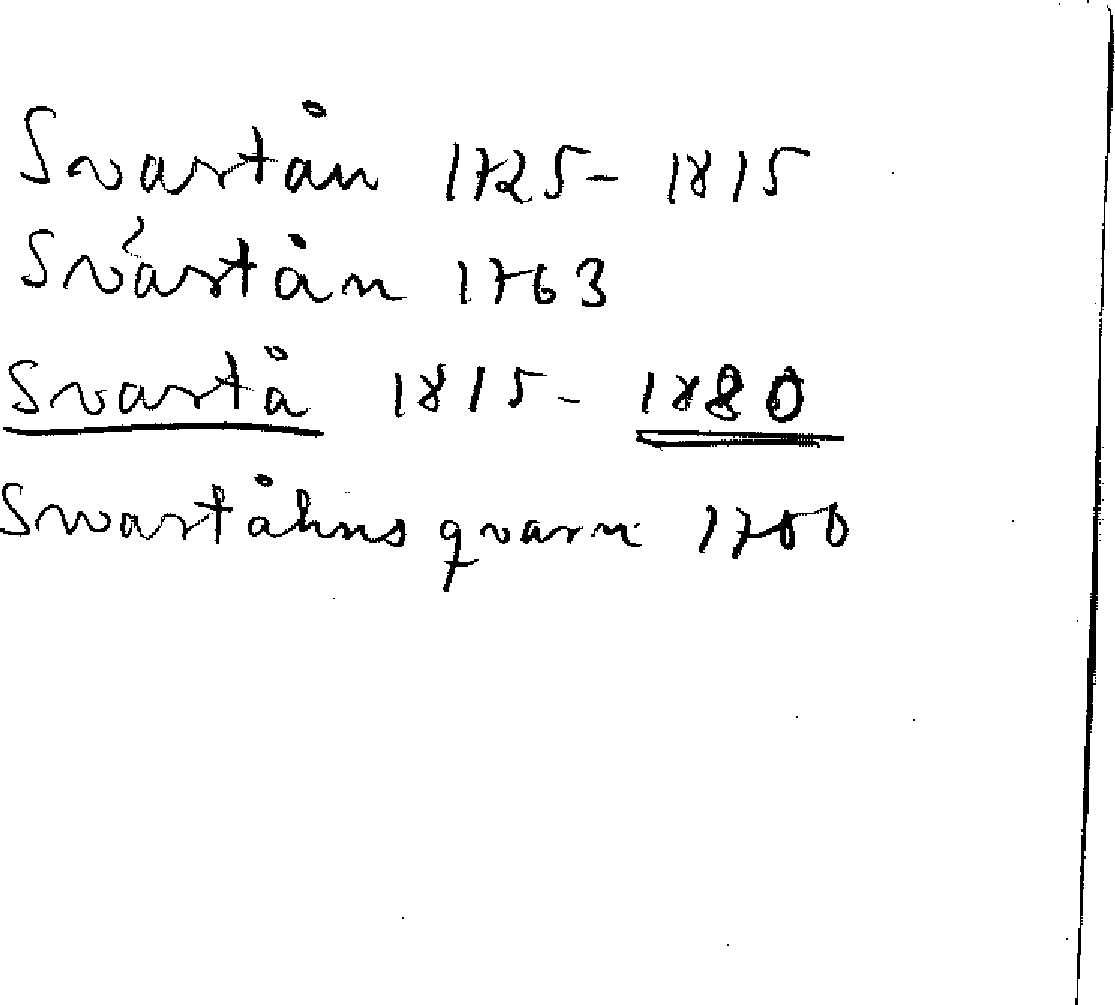 Svartån 1725-1815
Svártån 1763
Svartå 1815-1880
Swartåhns qvarn 1700